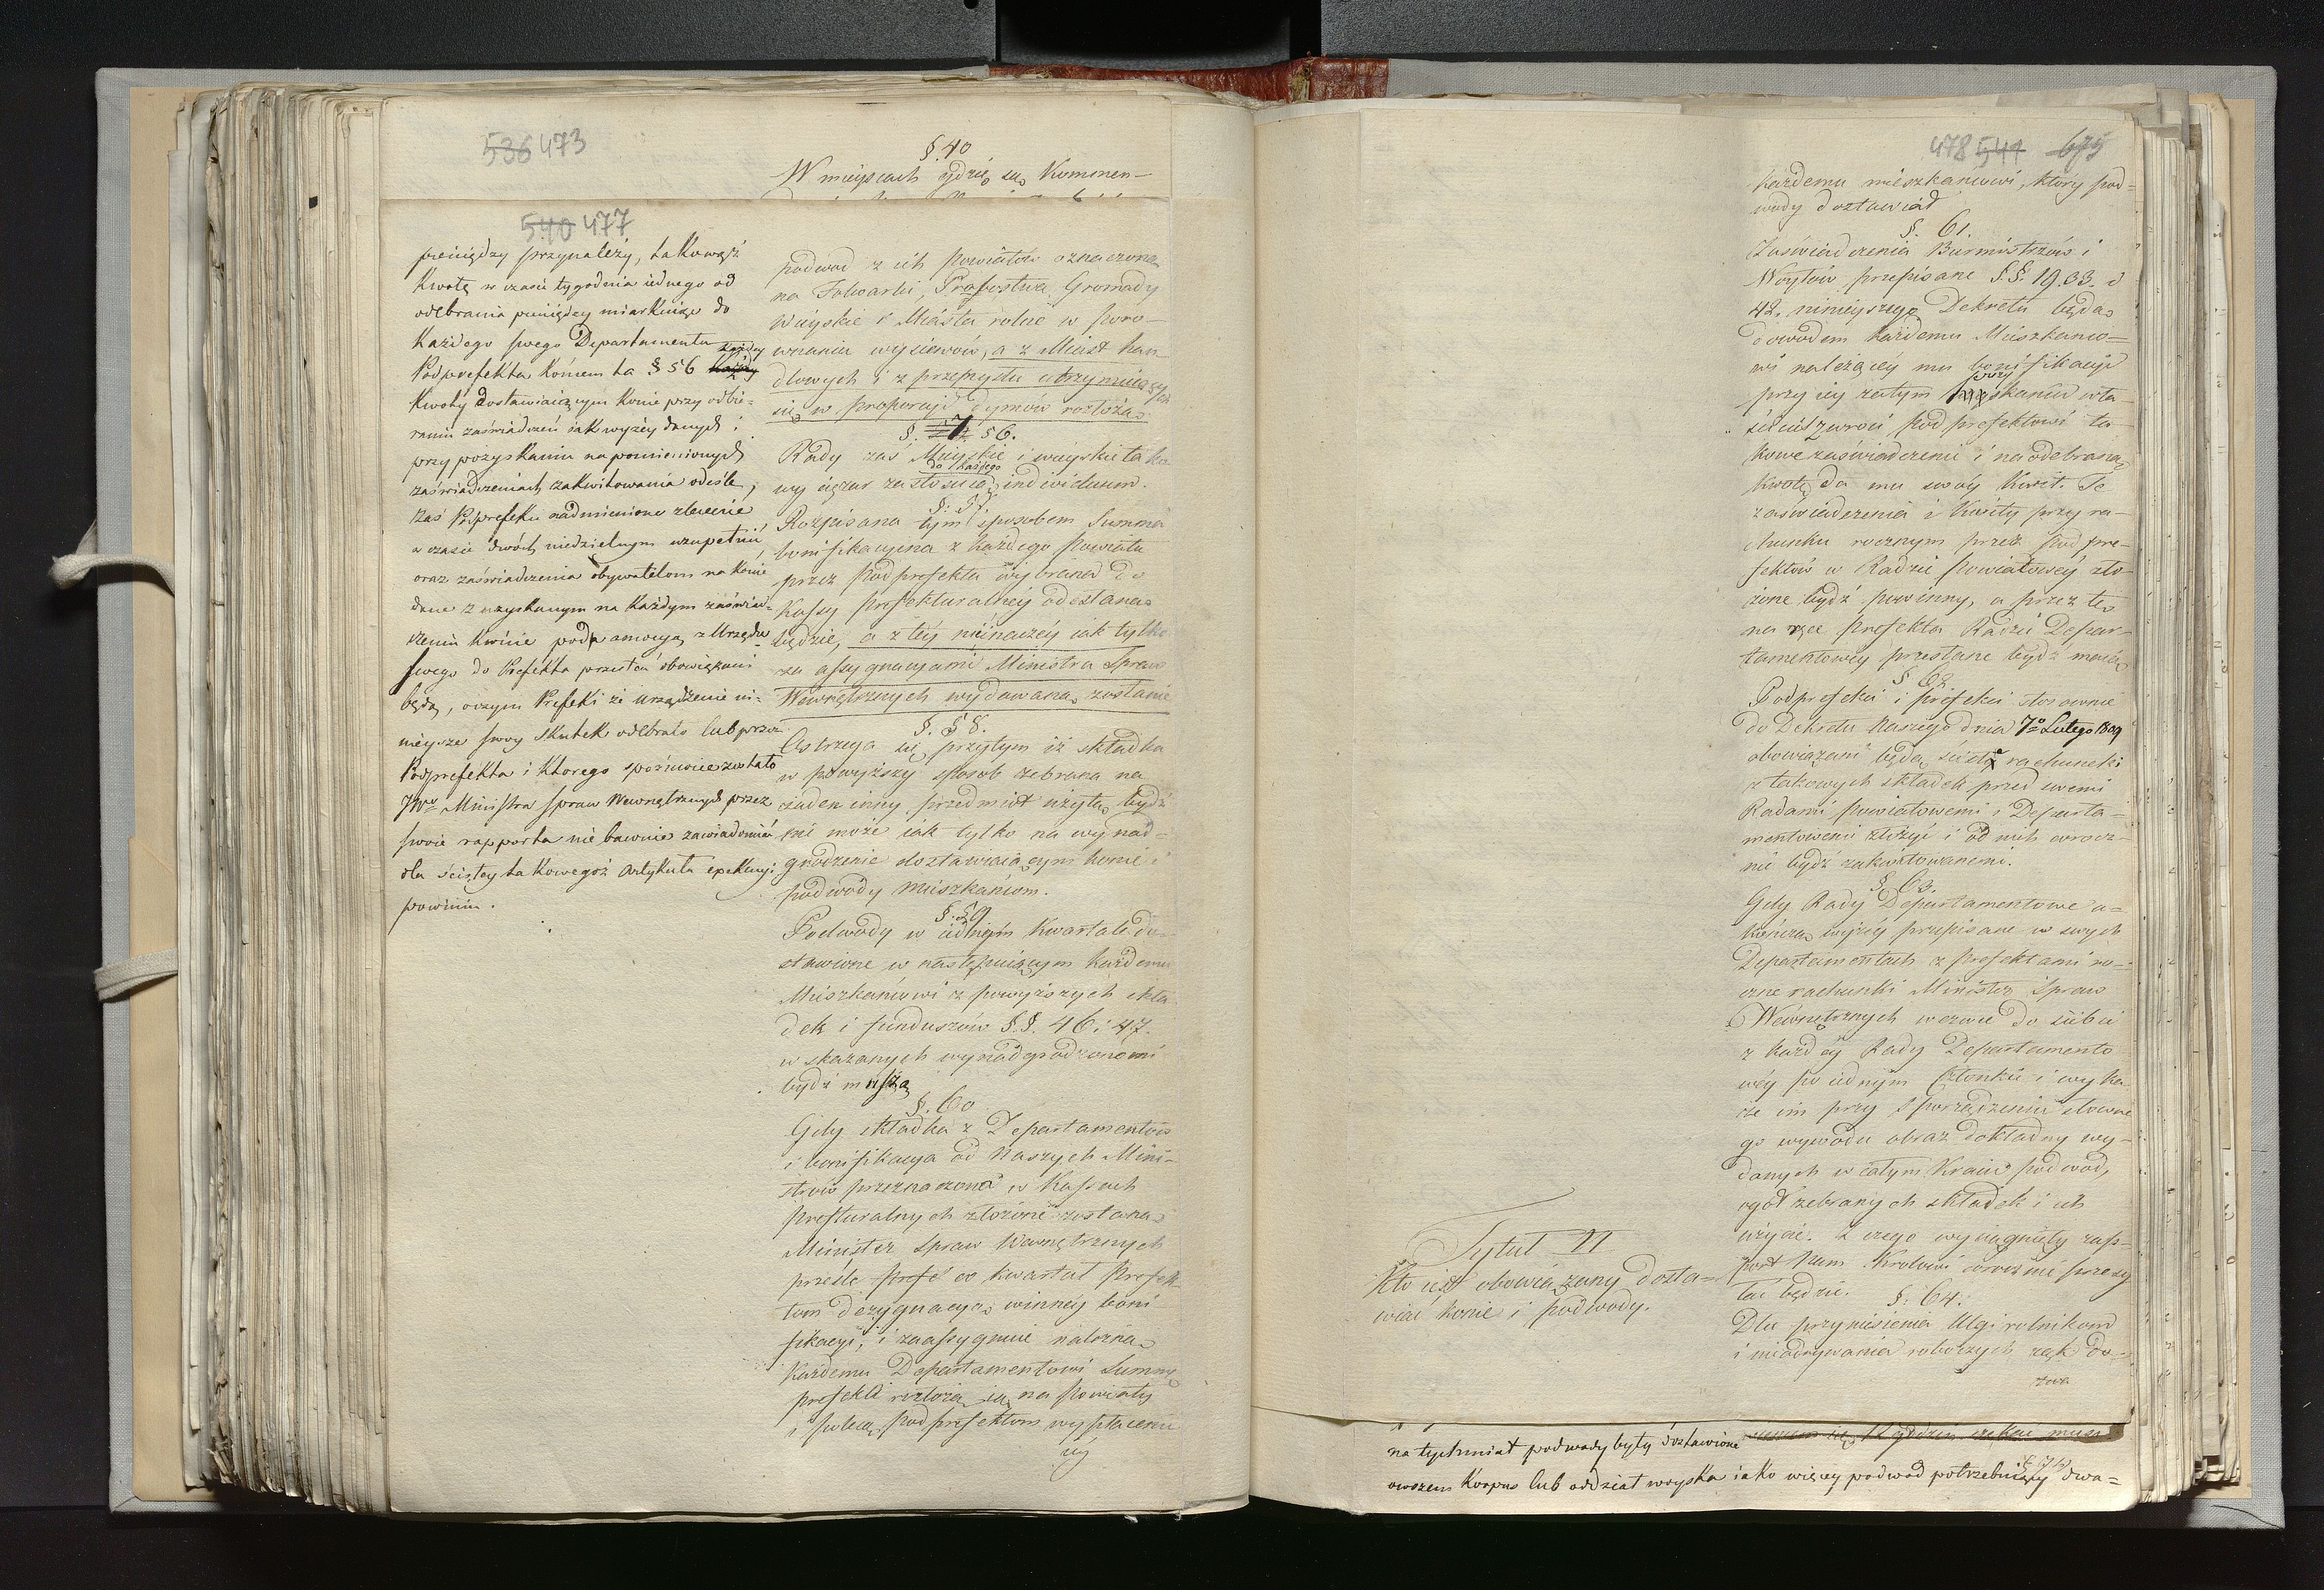 536 473
§. 40
W mieyscach gdzie są Kommen-
540 477
pieniędzy przynależy, takowąż
Kwotę w czasie tygodnia iednego od
odebrania pieniędzy miarkuiąc do
Każdego swego Departamentu
Podprefekta koniem ta § 56 każdy
Kwoty dostawiaiącym Konie przy odbie-
raniu zaświadczeń iak wyżey danych i
przy pozyskaniu na pomienionych
zaświadczeniach zakwitowania odeśle,
Zaś Podprefekci nadmienione zlecenie
w czasie dwóch niedzielnym uzupełnić,
oraz zaświadczenia obywatelom na Konie
dane z uzyskanym na Każdym zaświad-
czeniu kwicie pod amocyą z Urzędu
swego do Prefekta przesłać obowiązani
będą, o czym Prefekt że urządzenie ni-
nieysze swoy skutek odebrało lub przez
Podprefekta i Ktorego spóźnione zostało
JWo Ministra Spraw Wewnętrznych przez
swoie rapporta nie bawnie zawiadomić
dla ścisłey takowegoż Artykułu exekucyi
powinien.
podwod z ich powiatów oznaczona
na Folwarki, Probostwa, Gromady
Wieyskie i Miasta rolne w poro-
wnaniu wysiewów, a z Miast han-
dlowych i z przemysłu utrzymuiących
się w proporcyi dymów rozłożą.
§. 56.
Rady zaś Mieyskie i wieyskie tako-
wy ciężar zastosuią do każdego individuum.
§. 57.
Rozpisana tym sposobem Summa
bonifikacyina z każdego Powiatu
przez Podprefekta wybrana do
Kassy Prefekturalney odesłana
będzie, a z tey nieinaczey iak tylko
za assygnacyami Ministra Spraw
Wewnętrznych wydawana, zostanie
§. 58.
Ostrzega się przytym iż składka
w powyższy sposób zebrana na
żaden inny przedmiot użytą bydź
nie może iak tylko na wynad-
grodzenie dostawiaiącym konie i
podwody mieszkańcom.
§. 59
Podwody w iednym Kwartale do-
stawione w następuiącym każdemu
Mieszkańcowi z powyższych skła-
dek i funduszów §.§. 46 i 47.
wskazanych wynadgrodzonemi
bydź muszą
§. 60
Gdy składka z Departamentów
i bonifikacya od Naszych Mini-
strów przeznaczona w Kassach
Prefturalnych złożone zostaną
Minister Spraw Wewnętrznych
prześle co kwartał Prefek-
tom dezygnacyą winney boni-
fikacyi, i zaassygnuie należną
Każdemu Departamentowi Summę
prefekci rozłożą ią na Powiaty
i polecą Podprefektom wypłacenie
iey
478 541 675
każdemu mieszkańcowi, który pod-
wody dostawiał
§. 61.
Zaświadczenia Burmistrzów i
Woytów przepisane §.§. 19. 33. i
42. ninieyszego Dekretu będą
dowodem każdemu Mieszkańco-
wi należącey mu bonifikacyi
przy iey zatym skaniu wła-
ściciel zwroci Podprefektowi ta-
kowe zaświadczenie i na odebraną
kwotę da mu swoy kwit. Te
zaświadczenia i kwity przy ra-
chunku rocznym przez Podpre-
fektów w Radzie Powiatowey zło-
żone bydź powinny, a przez tę
na ręce Prefekta Radzie Depar-
tamentowey przesłane bydź maią
§ 62
Podprefekci i Prefekci stosownie
do Dekretu Naszego dnia 7o Lutego 1809
obowiązani będą ścisłe rachunki
z takowych składek przed swemi
Radami Powiatowemi i Departa-
mentowemi złożyć i od nich corocz-
nie bydź zakwitowanemi.
§ 63.
Gdy Rady Departamentowe u-
kończą wyżey przepisane w swych
Departamentach z Prefektami ro-
czne rachunki Minister Spraw
Wewnętrznych wezwie do siebie
z każdey Rady Departamento-
wey po iednym Członku i wyka-
że im przy sporządzeniu słowne-
go wywodu obraz dokładny wy-
danych w całym Kraiu podwod,
ogół zebranych składek i ich
użycie. Z czego wyciągnięty rap-
port Nam Królowi corocznie przesy-
łać będzie.
§. 64.
Dla przyniesienia Ulgi rolnikom
i nieodrywania roboczych rąk do-
Tytuł II
Kto iest obowiązany dosta-
wiać konie i podwody.
natychmiast podwody były dostawione
owszem Korpus lub oddział woyska iako więcey podwod potrzebuiący dwa-